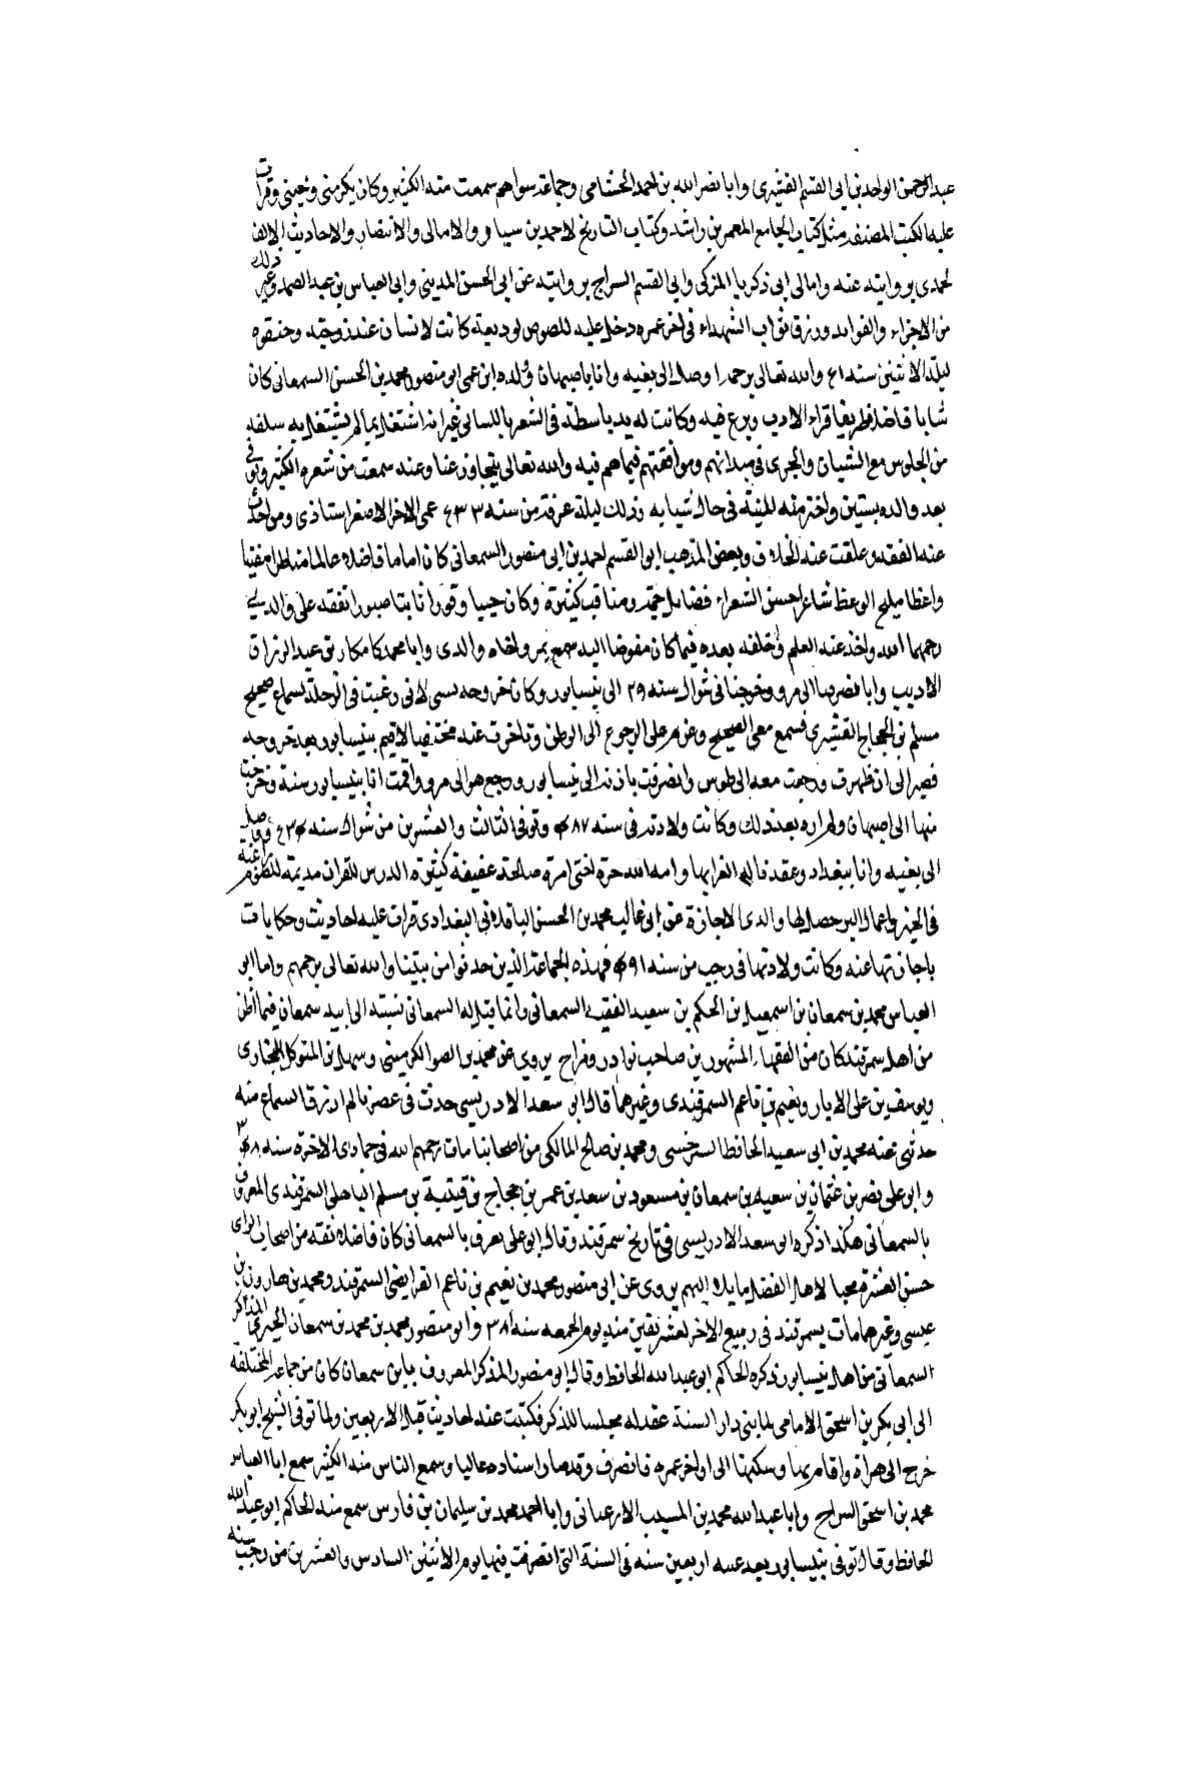 عبد الرحمن الواحد بن ابى القسم القشيرى وابا نصر الله بن احمد الخشنامى وجماعة سواهم سمعت منه الكثير وكان يكرمنى ويحبنى وقرات
عليه الكتب المصنفه مثل كتاب الجامع لمعمر بن راشد وكتاب التاريخ لاحمد بن سيار والامالى والانتصار والاحاديث الالف
لحمدى بروايته عنه وامالى ابى ذكريا المزكى وابى القسم السراج بروايته عن ابى الحسن المدينى وابى العباس بن عبد الصمد وغير ذلك
من الاجزاء والفوايد ورزق ثواب الشهداء فى اخر عمره دخل عليه للصوص لوديعة كانت لانسان عند زوجته وخنقوه
ليلة الاثنين سنه والله تعالى يرحمه وصل الى بغيه وانا باصبهان ولده ابن عمى ابو منصور محمد بن الحسن السمعانى كان
شابا فاضلا ظريفا قراء الادب وبرع فيه وكانت له يد باسطة فى الشعر باللسانى غير انه اشتغل بما لم يشتغل به سلفه
من الجلوس مع الشبان والجرى فى ميدانهم وموافقتهم فيما هم فيه والله تعالى يتجاوز عنا وعنه سمعت من شعره الكثير وتوفى
بعد والده بسنتين واخترمته المنية فى حال شبابه وذلك ليلة عرفة من سنه ٤٣٣ عمى الاخر الاصغر استاذى ومن اخذت
عنه الفقه وعلقت عنه الخلاف وبعض المذهب ابو القسم احمد بن ابى منصور السمعانى كان اماما فاضلا عالما مناظرا مفتيا
واعظا مليح الوعظ شاعرا حسن الشعراء فضايل جمة ومناقب كثيرة وكان حييا وقورا ثابتا صبورا تفقه على والدى
رحمهما الله واخذ عنه العلم وخلفه بعده فيما كان مفوضا اليه سمع بمرو اخاه والدى وابا محمد كامكار بن عبد الرزاق
الاديب وابا نصر الى مرو وخرجنا فى شوال سنه ٢٩ الى نيسابور وكان خروجه بسى لانى رغبت فى الرحلة لسماع صحيح
مسلم بن الحجاج القشيرى فسمع معى الصحيح وعزم على الرجوع الى الوطن وتاخرت عنه مختفيا لاقيم بنيسابور بعد خروجه
فصبر الى ان ظهرت ورجعت معه الى طوس وانصرفت باذنه الى نيسابور ورجع هو الى مرو واقمت انا بنيسابور سنة وخرجت
منها الى اصبهان ولم اره بعد ذلك وكانت ولادته فى سنه وتوفى الثالث والعشرين من شوال سنه وصل
الى بغيه وانا ببغداد وعقدنا له العزا بها وامه الله حرة اختى امرة صالحة عفيفة كثيرة الدرس للقران مديمة للصوم راغبة
فى الخير واعمال البر حصل لها والدى الاجازة عن ابى غالب محمد بن الحسن الباقلانى البغدادى قرات عليه احاديث وحكايات
باجازتها عنه وكانت ولادتها فى رجب من سنه فهذه الجماعة الذين حدثوا من بيتنا والله تعالى يرحمهم واما ابو
العباس محمد بن سمعان بن اسمعيل بن الحكم بن سعيد الفقيه السمعانى وانما قيل له السمعانى نسبته الى ابيه سمعان فيما اظن
من اهل سمرقند كان من الفقهاء المشهورين صاحب نوادر ومزاح يروى عن محمد بن الصو الكرمينى وسهل بن المتوكل البخارى
ويوسف بن على الابار ونعيم بن ناعم السمرقندى وغيرهما قال ابو سعد الادريسى حدث فى عصرنا لم ارزق السماع منه
حدثنى عنه محمد بن ابى سعيد الحافظ السرخسى ومحمد بن صالح المالكى من اصحابنا مات رحمهم الله فى جمادى الاخرة سنه
وابو على نصر بن عثمان بن سعيد بن سمعان بن مسعود بن سعد بن عمر بن حجاج بن قتيبة بن مسلم الباهلى السمرقندى المعروف
بالسمعانى هكذا ذكره ابو سعد الادريسى فى تاريخ سمرقند وقال ابو على يعرف بالسمعانى كان فاضلا ثقه من اصحاب الراى
حسن العشرة محبا لاهل الفضل مايلا اليهم يروى عن ابى منصور محمد بن نعيم بن ناعم الفرايضى السمرقند ومحمد بن هارون بن
عيسى وغيرهما مات بسمرقند فى ربيع الاخر لعشر بقين منه يوم الجمعه سنه ٣٨١ وابو منصور محمد بن محمد بن سمعان الحيرى المذاكر
السمعانى من اهل نيسابور ذكره الحاكم ابو عبد الله الحافظ وقال ابو منصور المذكر المعروف بابن سمعان كان من جماعة المختلفة
الى ابى بكر بن اسحق الامامى لما بنى دار السنة عقد له مجلسا للذكر فكتبت عنه احاديث قبل الاربعين ولما توفى الشيخ ابو بكر
خرج الى هراة واقام بها وسكنها الى اواخر عمره فانصرف وقد صار اسناده عاليا وسمع الناس منه الكثير سمع ابا العباس
محمد بن اسحق السراج وابا عبد الله محمد بن المسيب الارغيانى وابا احمد محمد بن سليمان بن فارس سمع منه الحاكم ابو عبد الله
الحافظ وقال توفى بنيسابور بعد اربعين سنه فى السنة التى انصرفت فيها يوم الاثنين السادس والعشرين من رجب سنه